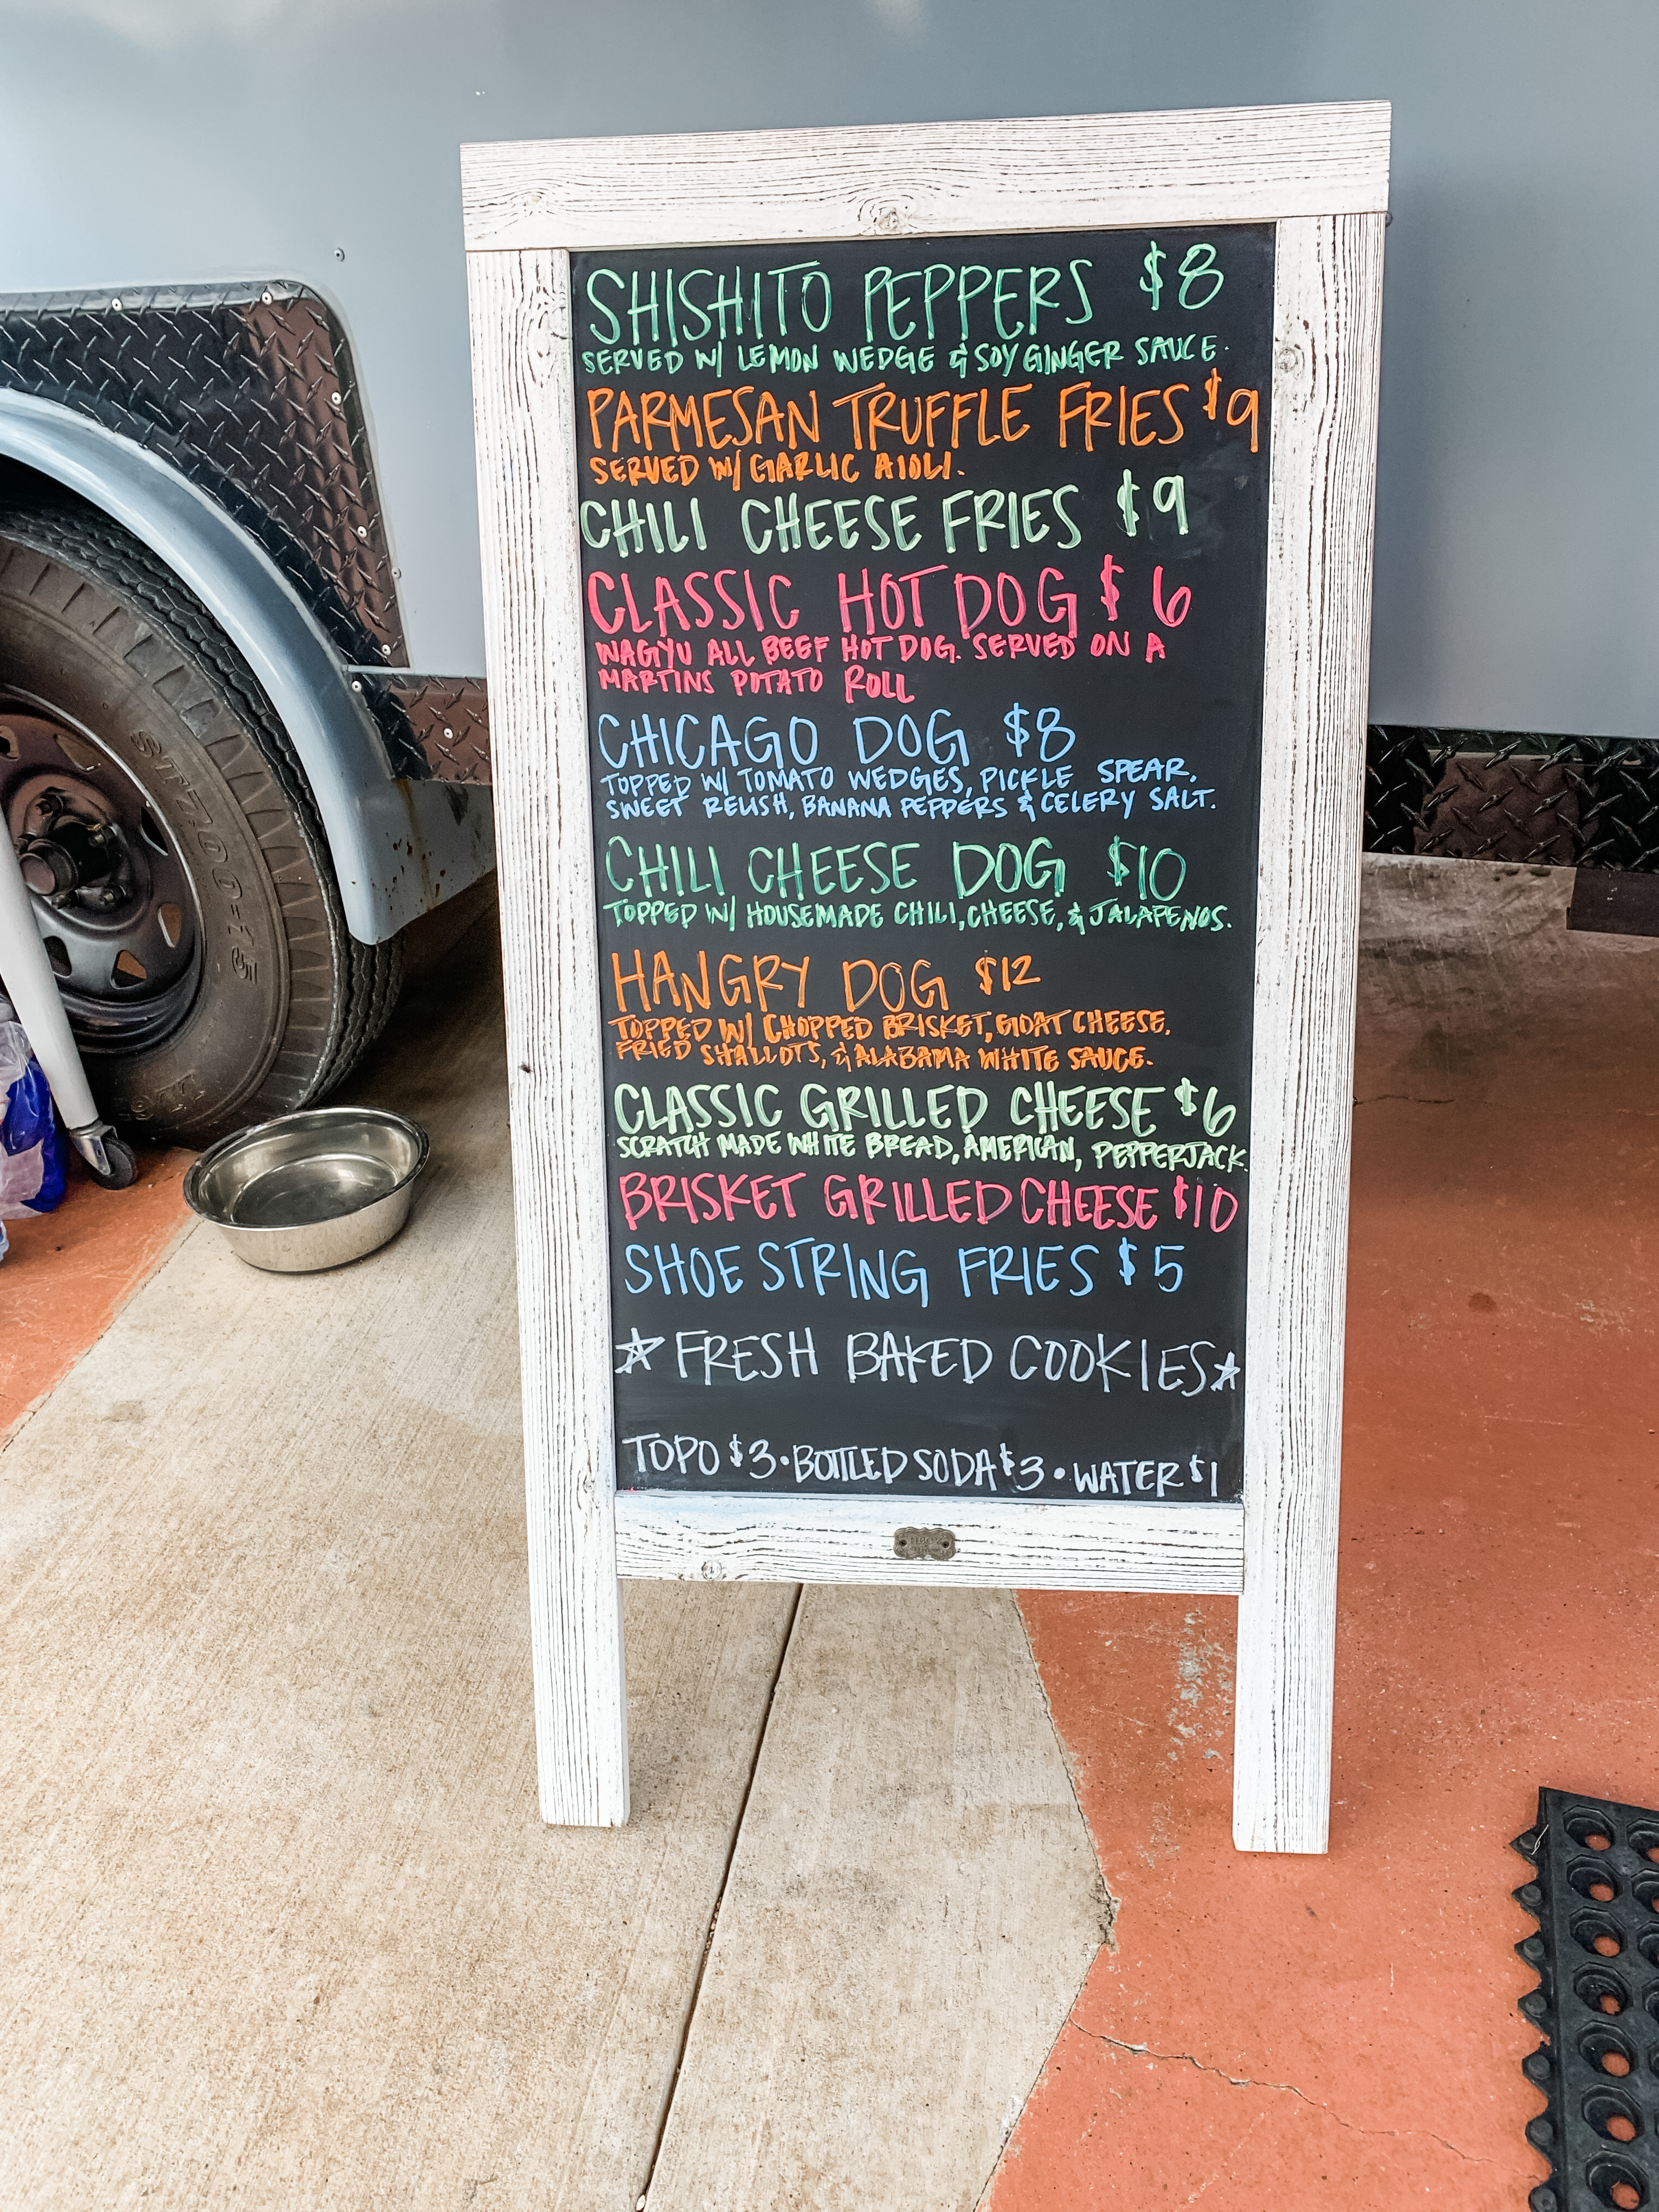 SHISHITO PEPPERS $8
SERVED W/ LEMON WEDGE & SOY GINGER SAUCE.
PARMESAN TRUFFLE FRIES $9
SERVED W/ GARLIC AIOLI.
CHILI CHEESE FRIES $9
CLASSIC HOT DOG $6
WAGYU ALL BEEF HOT DOG. SERVED ON A
MARTINS POTATO ROLL
CHICAGO DOG $8
TOPPED W/ TOMATO WEDGIES, PICKLE SPEAR,
SWEET RELISH, BANANA PEPPERS & CELERY SALT.
CHILI CHEESE DOG $10
TOPPED W/ HOUSEMADE CHILI, CHEESE, & JALAPENOS.
HANGRY DOG $12
TOPPED W/ CHOPPED BRISKET, GOAT CHEESE,
FRIED SHALLOTS, & ALABAMA WHITE SAUCE.
CLASSIC GRILLED CHEESE $6
SCRATCH MADE WHITE BREAD, AMERICAN, PEPPERJACK
BRISKET GRILLED CHEESE $10
SHOE STRING FRIES $5
☆ FRESH BAKED COOKIES ☆
TOPO $3 • BOTTLED SODA $3 • WATER $1